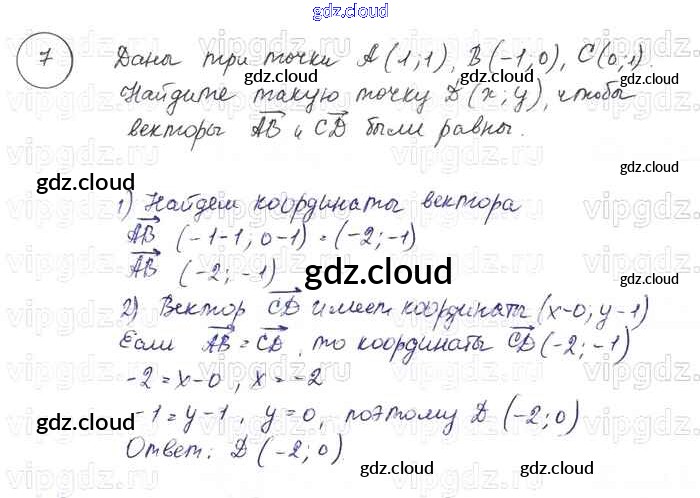 gdz.cloud
7 Даны три точки A(1;1), B(-1,0), C(0;1).
gdz.cloud gdz.cloud
Найдите такую точку D(x;y), чтобы
векторы AB и CD были равны.
gdz.cloud
gdz.cloud
1) Найдем координаты вектора
AB (-1-1; 0-1) = (-2; -1)
AB (-2; -1)
gdz.cloud
2) Вектор CD имеет координаты (x-0; y-1)
Если AB = CD, то координаты CD (-2; -1)
gdz.cloud gdz.cloud
-2 = x-0, x = -2
gdz.cloud
-1 = y-1, y = 0, поэтому D (-2; 0)
gdz.cloud
Ответ: D (-2; 0)
gdz.cloud gdz.cloud
vipgdz.ru